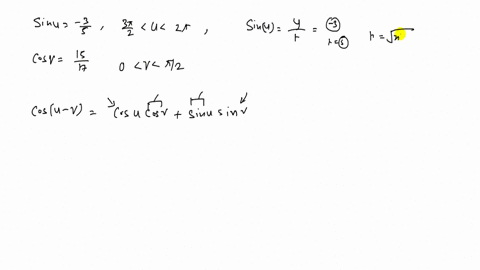 Sinu = -3/5 , 3π/2 < u < 2π , Sin(u) = y/r = -3/r=5 r = √x
Cosv = 15/17 0 < v < π/2
Cos(u-v) = Cosu Cosv + Sinu sinv